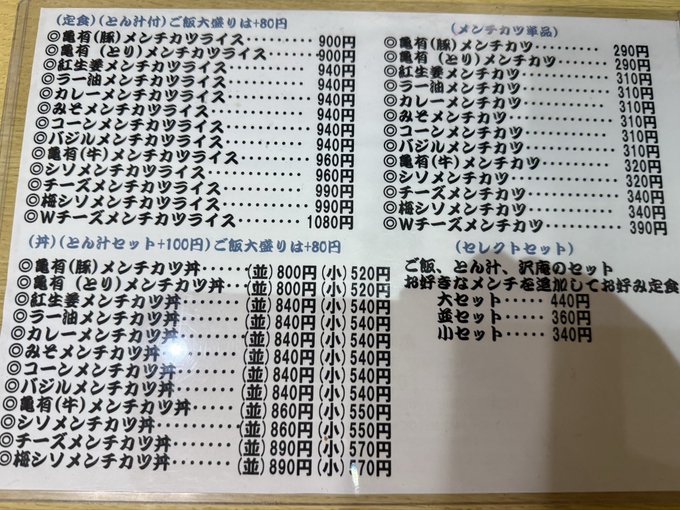 (定食)(とん汁付)ご飯大盛りは+80円
◎亀有(豚)メンチカツライス‥‥‥ 900円
◎亀有(とり)メンチカツライス‥‥‥ 900円
◎紅生姜メンチカツライス‥‥‥‥ 940円
◎ラー油メンチカツライス‥‥‥‥ 940円
◎カレーメンチカツライス‥‥‥‥ 940円
◎みそメンチカツライス‥‥‥‥‥ 940円
◎コーンメンチカツライス‥‥‥‥ 940円
◎バジルメンチカツライス‥‥‥‥ 940円
◎亀有(牛)メンチカツライス‥‥‥ 960円
◎シソメンチカツライス‥‥‥‥‥ 960円
◎チーズメンチカツライス‥‥‥‥ 990円
◎梅シソメンチカツライス‥‥‥‥ 990円
◎Wチーズメンチカツライス‥‥‥ 1080円
(丼)(とん汁セット+100円)ご飯大盛りは+80円
◎亀有(豚)メンチカツ丼‥‥‥(並)800円(小)520円
◎亀有(とり)メンチカツ丼‥‥(並)800円(小)520円
◎紅生姜メンチカツ丼‥‥‥‥(並)840円(小)540円
◎ラー油メンチカツ丼‥‥‥‥(並)840円(小)540円
◎カレーメンチカツ丼‥‥‥‥(並)840円(小)540円
◎みそメンチカツ丼‥‥‥‥‥(並)840円(小)540円
◎コーンメンチカツ丼‥‥‥‥(並)840円(小)540円
◎バジルメンチカツ丼‥‥‥‥(並)840円(小)540円
◎亀有(牛)メンチカツ丼‥‥‥(並)860円(小)550円
◎シソメンチカツ丼‥‥‥‥‥(並)860円(小)550円
◎チーズメンチカツ丼‥‥‥‥(並)890円(小)570円
◎梅シソメンチカツ丼‥‥‥‥(並)890円(小)570円
(メンチカツ単品)
◎亀有(豚)メンチカツ‥‥‥‥‥ 290円
◎亀有(とり)メンチカツ‥‥‥‥ 290円
◎紅生姜メンチカツ‥‥‥‥‥‥ 310円
◎ラー油メンチカツ‥‥‥‥‥‥ 310円
◎カレーメンチカツ‥‥‥‥‥‥ 310円
◎みそメンチカツ‥‥‥‥‥‥‥ 310円
◎コーンメンチカツ‥‥‥‥‥‥ 310円
◎バジルメンチカツ‥‥‥‥‥‥ 310円
◎亀有(牛)メンチカツ‥‥‥‥‥ 320円
◎シソメンチカツ‥‥‥‥‥‥‥ 320円
◎チーズメンチカツ‥‥‥‥‥‥ 340円
◎梅シソメンチカツ‥‥‥‥‥‥ 340円
◎Wチーズメンチカツ‥‥‥‥‥ 390円
(セレクトセット)
ご飯、とん汁、沢庵のセット
お好きなメンチを追加してお好み定食
大セット‥‥‥ 440円
並セット‥‥‥ 360円
小セット‥‥‥ 340円